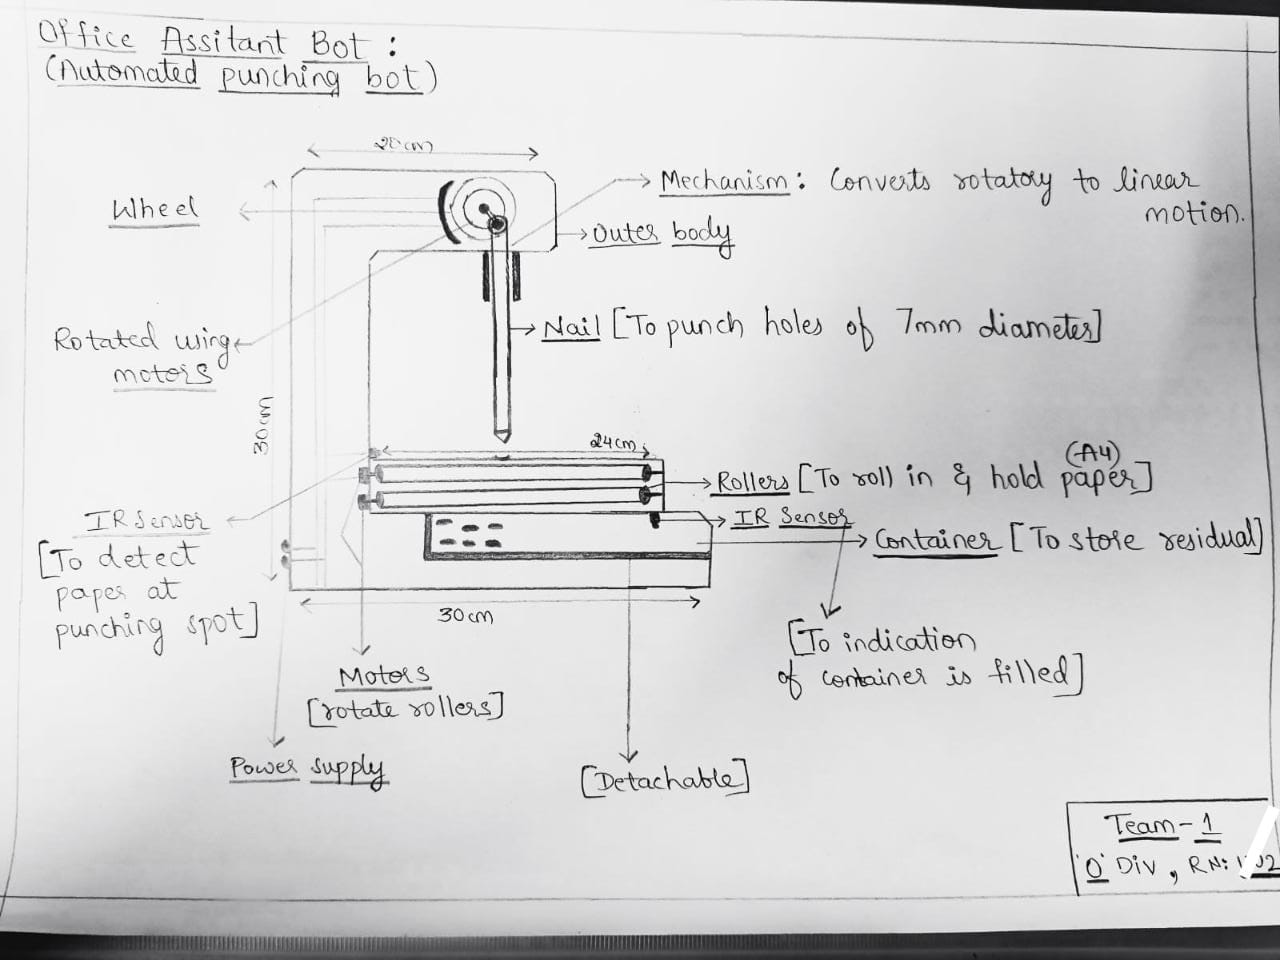 Office Assitant Bot :
(Automated punching bot)
20cm
Mechanism : Converts rotatory to linear
motion.
Wheel
Outer body
Nail [To punch holes of 7mm diameter]
Rotated wing
motors
30cm
24cm
(A4)
Rollers [To roll in & hold paper]
IR Sensor
IR Sensor
Container [To store residual]
[To detect
paper at
punching spot]
30cm
[To indication
of container is filled]
Motors
[rotate rollers]
Power supply
[Detachable]
Team-1
'O' Div , RN: